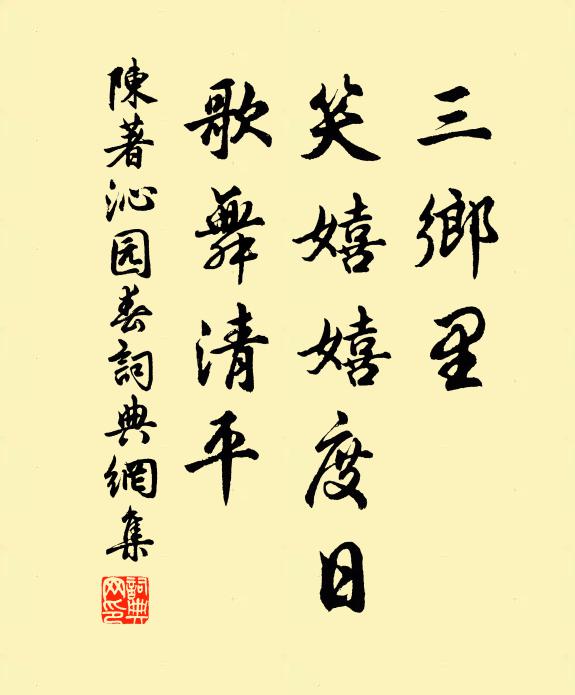 三鄉里
笑嬉嬉度日
歌舞清平
陳著沁园春詞典網集
詞典网印